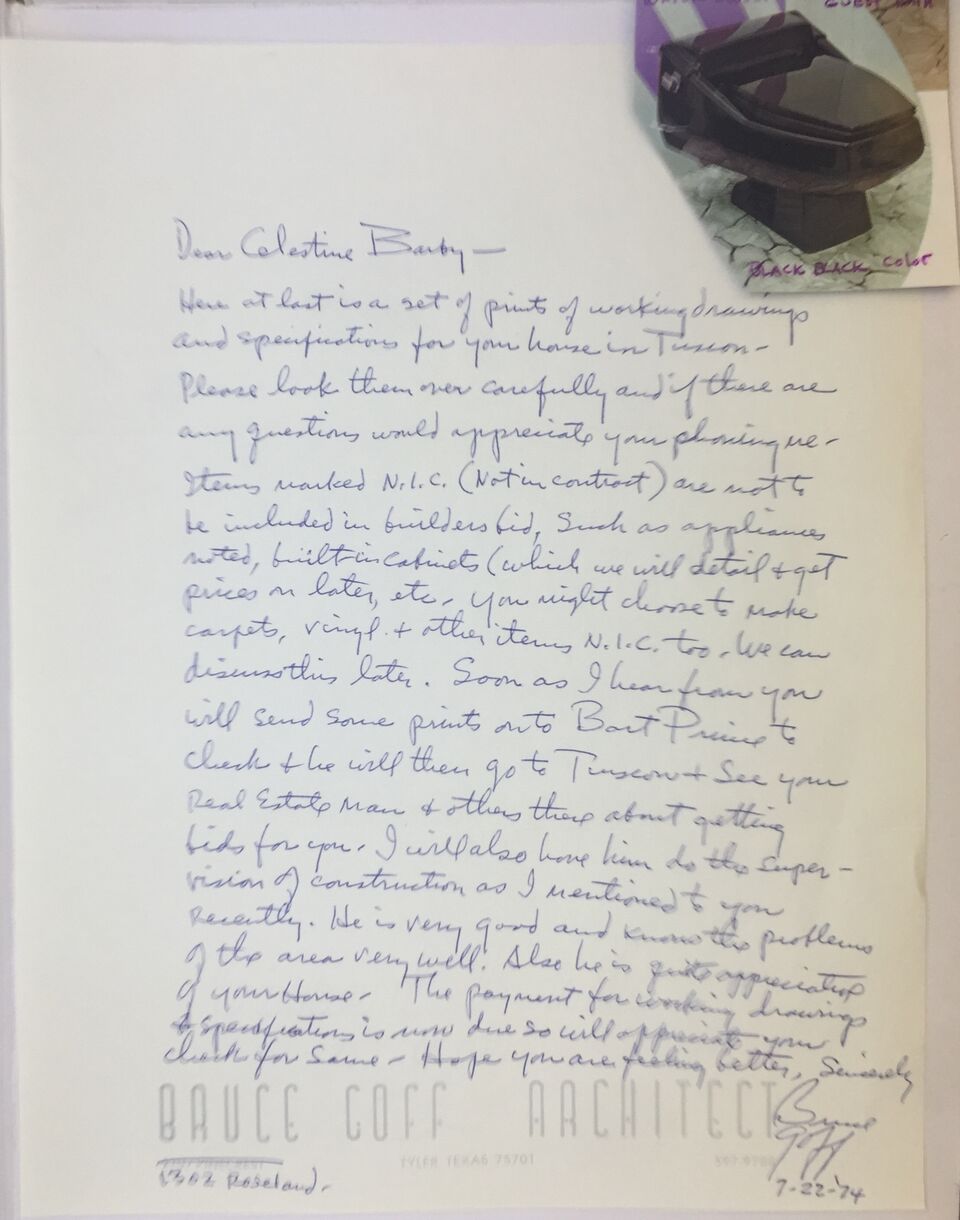 GUEST BATH
BLACK BLACK, COLOR
Dear Celestine Barby —
Here at last is a set of prints of working drawings
and specifications for your house in Tuscon -
Please look them over carefully and if there are
any questions would appreciate your phoning me -
Items marked N.I.C. (Not in contract) are not to
be included in builders bid, Such as appliances
noted, built-in cabinets (which we will detail & get
prices on later, etc. You might choose to make
carpets, vinyl & other items N.I.C. too. We can
discuss this later. Soon as I hear from you
will send some prints on to Bart Prince to
check & he will then go to Tuscon & See your
Real Estate Man & others there about getting
bids for you. I will also have him do the super-
vision of construction as I mentioned to you
recently. He is very good and knows the problems
of the area very well. Also he is quite appreciative
of your House - The payment for working drawings
& specifications is now due so will appreciate your
check for same - Hope you are feeling better, Sincerely
Bruce
Goff
BRUCE GOFF ARCHITECT
TYLER TEXAS 75701
1302 Roseland.
7-22-'74